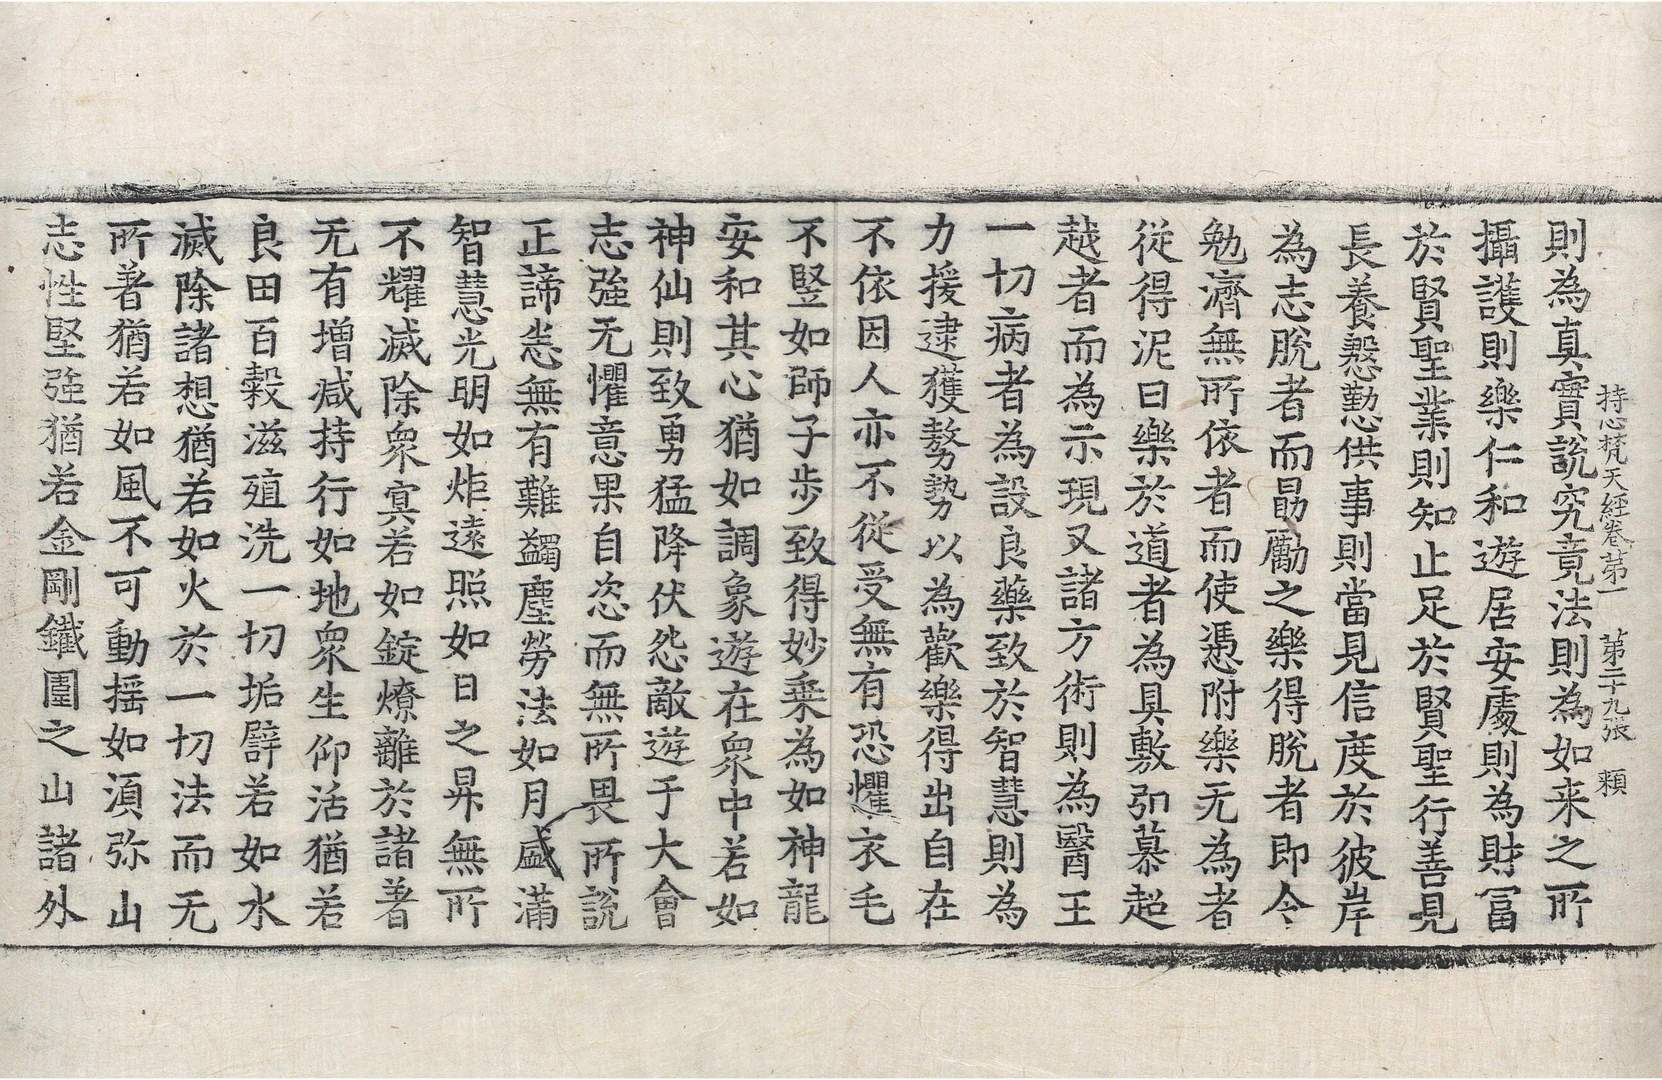 持心梵天經卷第一 第二十九張 頼
則為真實說究竟法則為如来之所
攝護則樂仁和遊居安處則為財冨
於賢聖業則知止足於賢聖行善見
長養慇懃供事則當見信度於彼岸
為志脫者而勗勵之樂得脫者即令
勉濟無所依者而使憑附樂无為者
從得泥曰樂於道者為具敷弘慕超
越者而為示現又諸方術則為醫王
一切病者為設良藥致於智慧則為
力援逮獲勢以為歡樂得出自在
不依因人亦不從受無有恐懼衣毛
不竪如師子步致得妙乗為如神龍
安和其心猶如調象遊在衆中若如
神仙則致勇猛降伏怨敵遊于大會
志強无懼意果自恣而無所畏所說
正諦恙無有難蠲塵勞法如月盛滿
智慧光明如炬遠照如日之昇無所
不耀滅除衆冥若如錠燎離於諸著
无有增减持行如地衆生仰活猶若
良田百糓滋殖洗一切垢譬若如水
滅除諸想猶若如火於一切法而无
所著猶若如風不可動揺如湏弥山
志性堅強猶若金剛鐵圍之山諸外